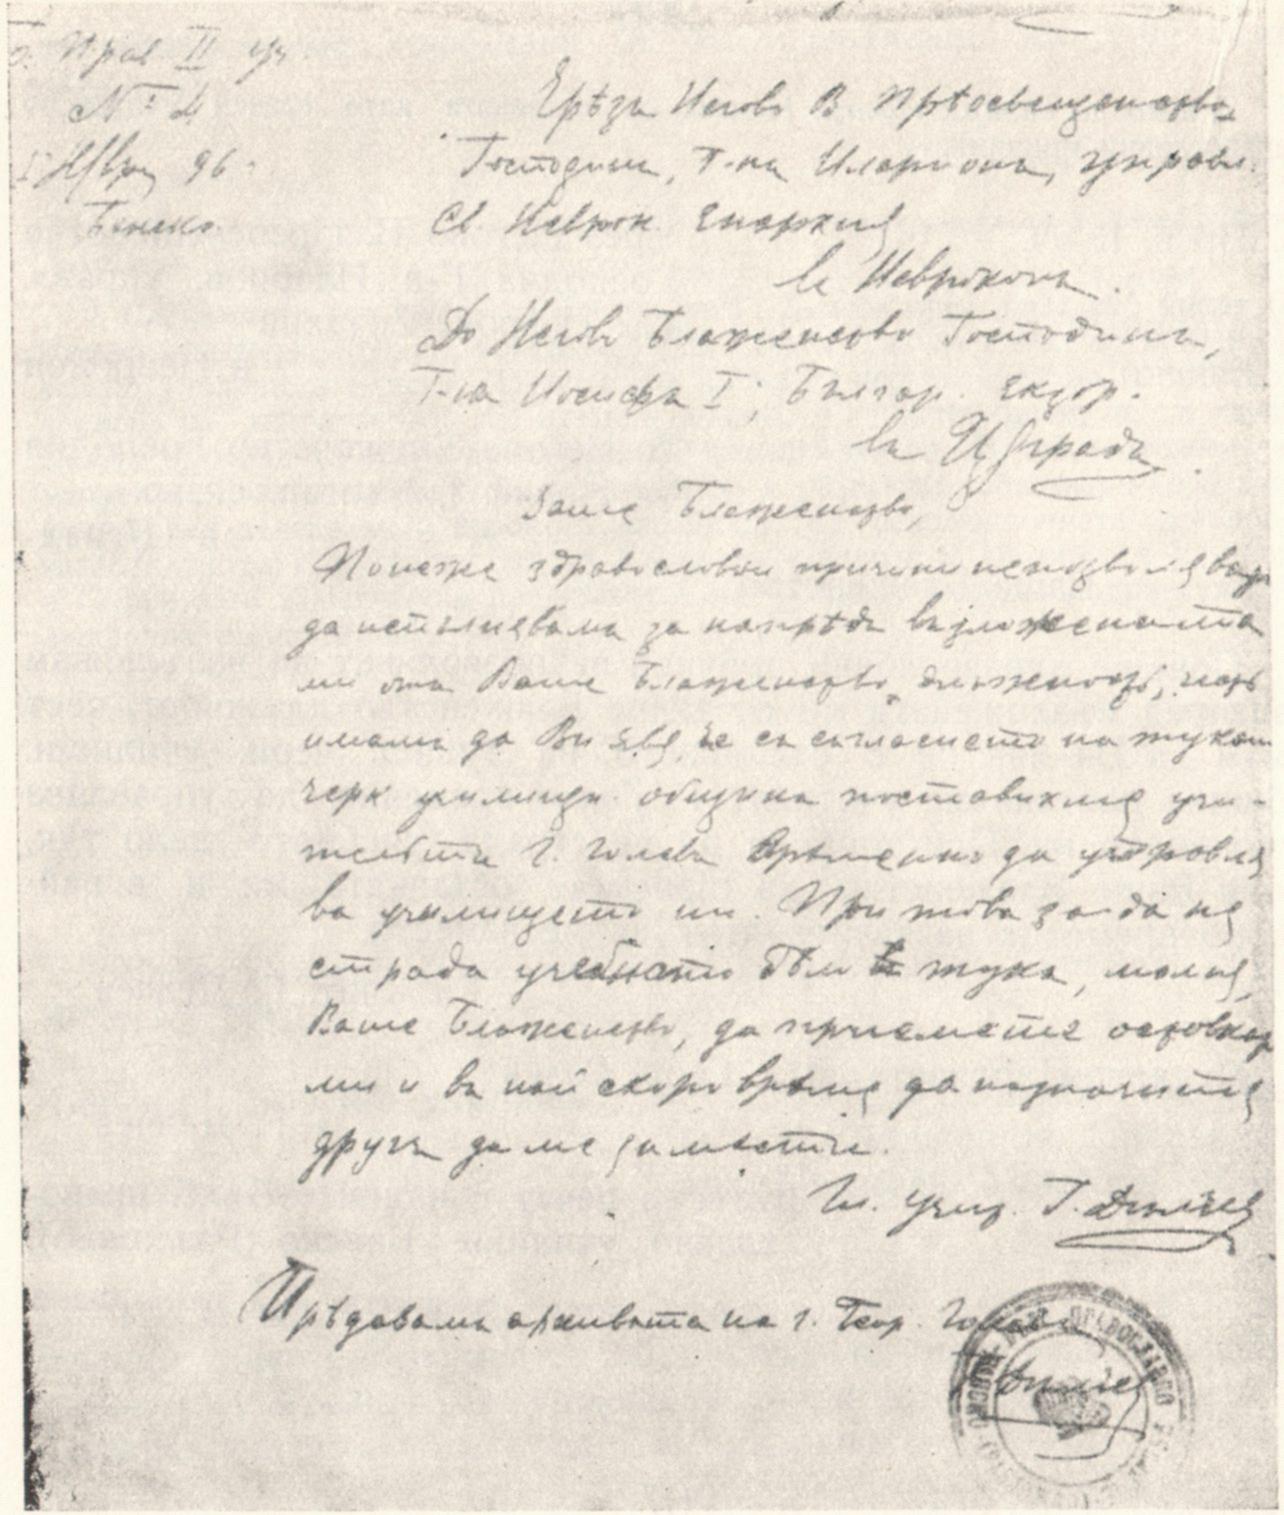 Прав II уч
№ 4
Януарий 96
Банско.
Чрѣзъ Негово В. Прѣосвещенство,
Господина, Г-на Илариона, управл.
Св. Неврок. Епархия
въ Неврокопъ.
До Негово Блаженство Господина,
Г-на Иосифа I, Българ. Екзар.
въ Цариградъ.
Ваше Блаженство,
Понеже здравословни причини непозволяватъ
да испълнявамъ за напрѣдъ възложената
ми отъ Ваше Блаженство длъжность, честь
имамъ да Ви явя, че съ съгласието на тукаш
черк училищн. община поставихме учи-
тельтъ Г. Голевъ врѣменно да управля
ва училището ни. При това за да не
страда учебното дѣло въ тука, моля,
Ваше Блаженство, да приемете оставката
ми и въ най скоро врѣме да назначите
другъ да ме замѣсти.
Гл. учит. Г. Дѣлчев
Прѣдавамъ архивата на г. Геор. Голевъ
Г. Дѣлчев